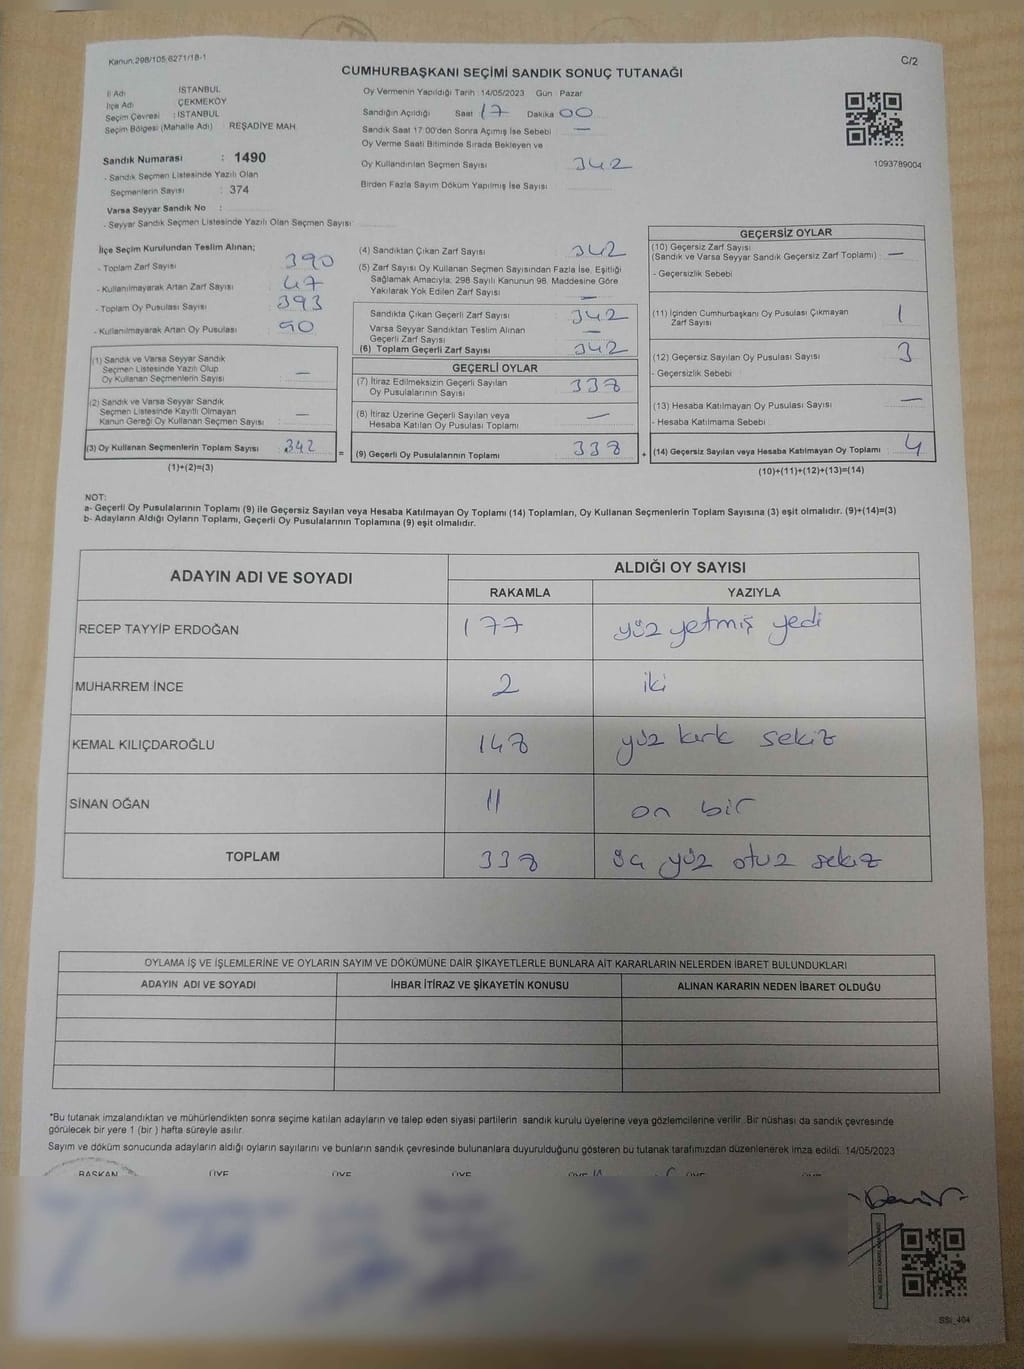 Kanun.298/105.6271/18-1
C/2
CUMHURBAŞKANI SEÇİMİ SANDIK SONUÇ TUTANAĞI
İl Adı : İSTANBUL
İlçe Adı : ÇEKMEKÖY
Seçim Çevresi : İSTANBUL
Seçim Bölgesi (Mahalle Adı) : REŞADİYE MAH.
Sandık Numarası : 1490
- Sandık Seçmen Listesinde Yazılı Olan
Seçmenlerin Sayısı : 374
Varsa Seyyar Sandık No :
- Seyyar Sandık Seçmen Listesinde Yazılı Olan Seçmen Sayısı
Oy Vermenin Yapıldığı Tarih : 14/05/2023 Gün : Pazar
Sandığın Açıldığı Saat 17 Dakika 00
Sandık Saat 17:00'den Sonra Açılmış İse Sebebi —
Oy Verme Saati Bitiminde Sırada Bekleyen ve
Oy Kullandırılan Seçmen Sayısı 342
Birden Fazla Sayım Döküm Yapılmış İse Sayısı
1093789004
İlçe Seçim Kurulundan Teslim Alınan;
- Toplam Zarf Sayısı 390
- Kullanılmayarak Artan Zarf Sayısı 47
- Toplam Oy Pusulası Sayısı 393
- Kullanılmayarak Artan Oy Pusulası 90
(1) Sandık ve Varsa Seyyar Sandık
Seçmen Listesinde Yazılı Olup
Oy Kullanan Seçmenlerin Sayısı —
(2) Sandık ve Varsa Seyyar Sandık
Seçmen Listesinde Kayıtlı Olmayan
Kanun Gereği Oy Kullanan Seçmen Sayısı —
(3) Oy Kullanan Seçmenlerin Toplam Sayısı 342
(1)+(2)=(3)
(4) Sandıktan Çıkan Zarf Sayısı 342
(5) Zarf Sayısı Oy Kullanan Seçmen Sayısından Fazla İse, Eşitliği
Sağlamak Amacıyla; 298 Sayılı Kanunun 98. Maddesine Göre
Yakılarak Yok Edilen Zarf Sayısı —
Sandıkta Çıkan Geçerli Zarf Sayısı 342
Varsa Seyyar Sandıktan Teslim Alınan
Geçerli Zarf Sayısı —
(6) Toplam Geçerli Zarf Sayısı 342
GEÇERLİ OYLAR
(7) İtiraz Edilmeksizin Geçerli Sayılan
Oy Pusulalarının Sayısı 338
(8) İtiraz Üzerine Geçerli Sayılan veya
Hesaba Katılan Oy Pusulası Toplamı —
= (9) Geçerli Oy Pusulalarının Toplamı 338
GEÇERSİZ OYLAR
(10) Geçersiz Zarf Sayısı
(Sandık ve Varsa Seyyar Sandık Geçersiz Zarf Toplamı) —
- Geçersizlik Sebebi
(11) İçinden Cumhurbaşkanı Oy Pusulası Çıkmayan
Zarf Sayısı 1
(12) Geçersiz Sayılan Oy Pusulası Sayısı 3
- Geçersizlik Sebebi :
(13) Hesaba Katılmayan Oy Pusulası Sayısı —
- Hesaba Katılmama Sebebi :
+ (14) Geçersiz Sayılan veya Hesaba Katılmayan Oy Toplamı 4
(10)+(11)+(12)+(13)=(14)
NOT:
a- Geçerli Oy Pusulalarının Toplamı (9) ile Geçersiz Sayılan veya Hesaba Katılmayan Oy Toplamı (14) Toplamları, Oy Kullanan Seçmenlerin Toplam Sayısına (3) eşit olmalıdır. (9)+(14)=(3)
b- Adayların Aldığı Oyların Toplamı, Geçerli Oy Pusulalarının Toplamına (9) eşit olmalıdır.
ADAYIN ADI VE SOYADI ALDIĞI OY SAYISI
RAKAMLA YAZIYLA
RECEP TAYYİP ERDOĞAN 177 yüz yetmiş yedi
MUHARREM İNCE 2 iki
KEMAL KILIÇDAROĞLU 148 yüz kırk sekiz
SİNAN OĞAN 11 on bir
TOPLAM 338 üç yüz otuz sekiz
OYLAMA İŞ VE İŞLEMLERİNE VE OYLARIN SAYIM VE DÖKÜMÜNE DAİR ŞİKAYETLERLE BUNLARA AİT KARARLARIN NELERDEN İBARET BULUNDUKLARI
ADAYIN ADI VE SOYADI İHBAR İTİRAZ VE ŞİKAYETİN KONUSU ALINAN KARARIN NEDEN İBARET OLDUĞU
*Bu tutanak imzalandıktan ve mühürlendikten sonra seçime katılan adayların ve talep eden siyasi partilerin sandık kurulu üyelerine veya gözlemcilerine verilir. Bir nüshası da sandık çevresinde
görülecek bir yere 1 (bir ) hafta süreyle asılır.
Sayım ve döküm sonucunda adayların aldığı oyların sayılarını ve bunların sandık çevresinde bulunanlara duyurulduğunu gösteren bu tutanak tarafımızdan düzenlenerek imza edildi. 14/05/2023
BAŞKAN ÜYE ÜYE ÜYE ÜYE ÜYE ÜYE
SSİ_404